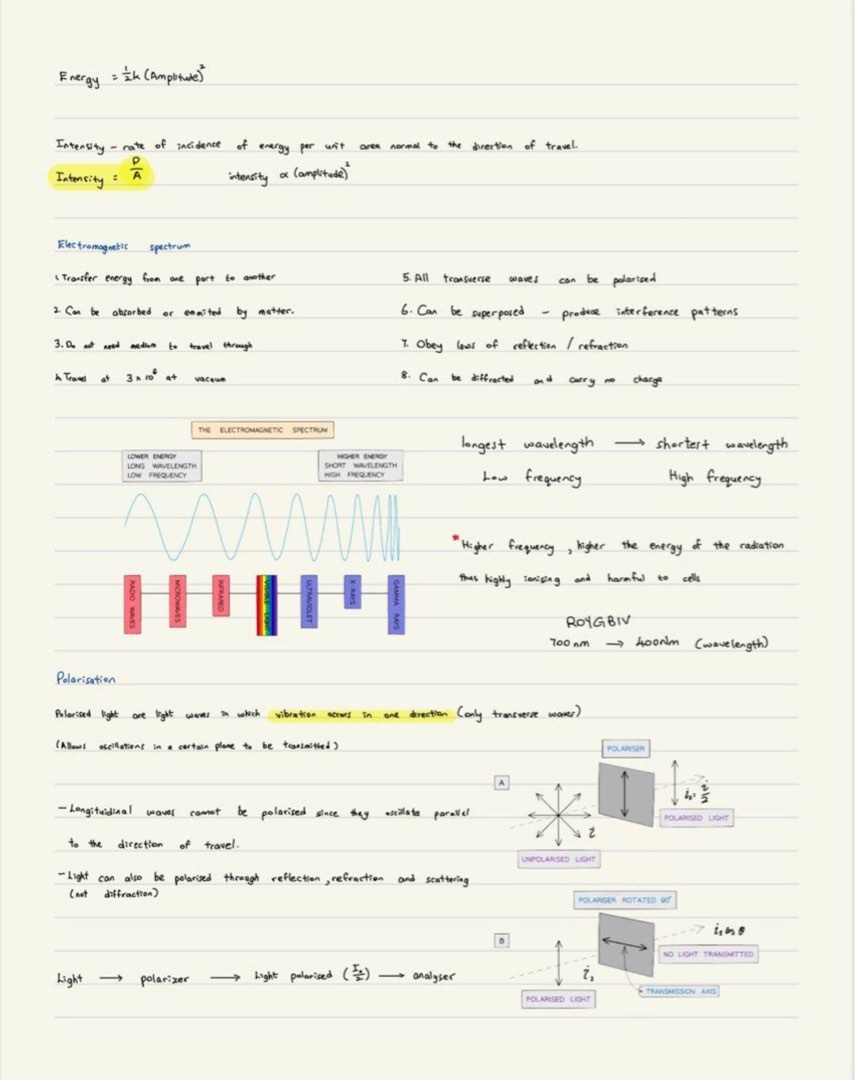 Energy = ½k (Amplitude)²
Intensity - rate of incidence of energy per unit area normal to the direction of travel.
Intensity = P/A intensity ∝ (amplitude)²
Electromagnetic spectrum
1. Transfer energy from one part to another
2. Can be absorbed or emmited by matter.
3. Do not need medium to travel through
4. Travel at 3 × 10⁸ at vacuum
5. All transverse waves can be polarised
6. Can be superposed - produce interference patterns
7. Obey laws of reflection / refraction
8. Can be diffracted and carry no charge
THE ELECTROMAGNETIC SPECTRUM
LOWER ENERGY
LONG WAVELENGTH
LOW FREQUENCY
HIGHER ENERGY
SHORT WAVELENGTH
HIGH FREQUENCY
RADIO WAVES
MICROWAVES
INFRARED
VISIBLE LIGHT
ULTRAVIOLET
X-RAYS
GAMMA RAYS
longest wavelength → shortest wavelength
Low frequency High frequency
* Higher frequency, higher the energy of the radiation
thus highly ionising and harmful to cells
ROYGBIV
700 nm → 400nm (wavelength)
Polarisation
Polarised light are light waves in which vibration occurs in one direction (only transverse waves)
(Allows oscillations in a certain plane to be transmitted)
- Longituidinal waves cannot be polarised since they oscillate parallel
to the direction of travel.
- Light can also be polarised through reflection, refraction and scattering
(not diffraction)
Light → polarizer → Light polarised (I₀/2) → analyser
POLARISER
A
i
i₂ = i/2
POLARISED LIGHT
UNPOLARISED LIGHT
POLARISER ROTATED 90°
B
i₂ cos θ
NO LIGHT TRANSMITTED
i₂
TRANSMISSION AXIS
POLARISED LIGHT